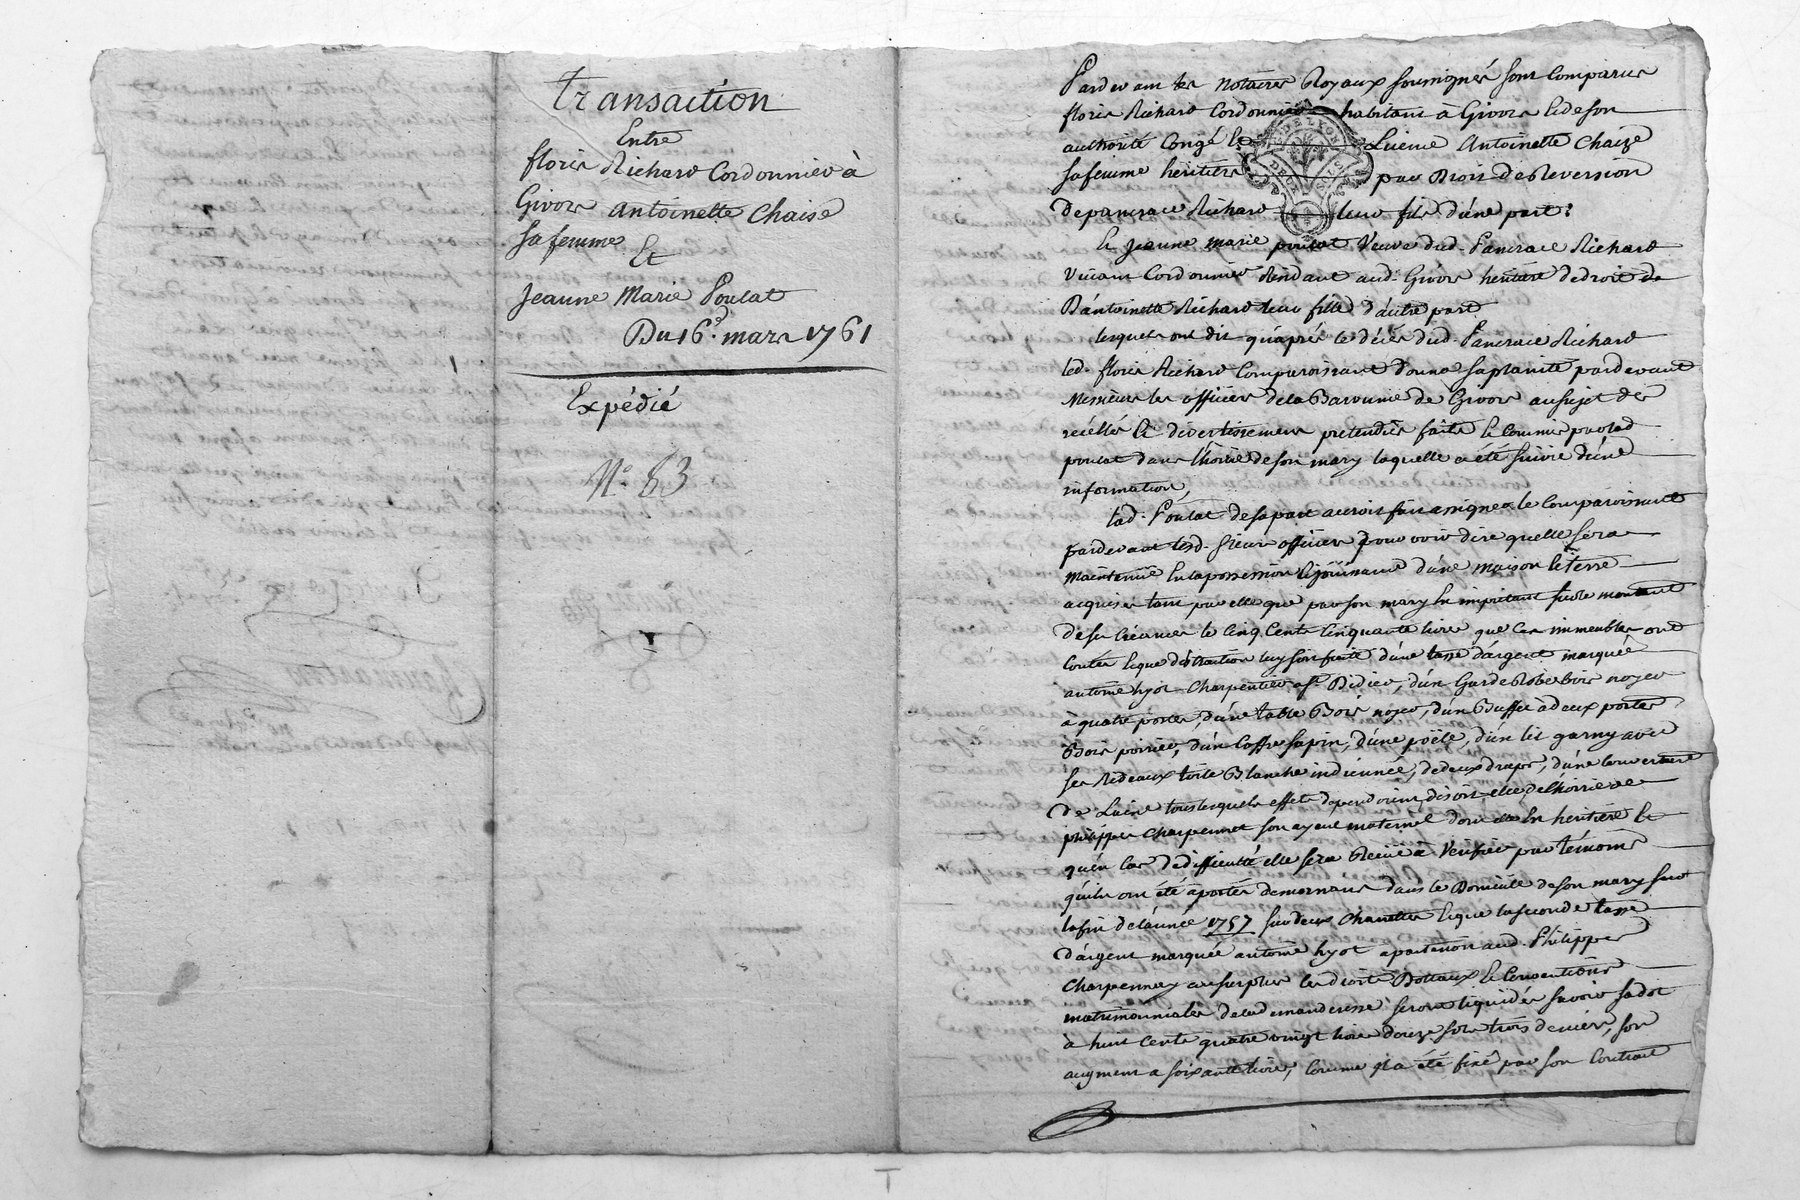 Transaction
Entre
floris Richard Cordonnier à
Givors antoinette Chaise
sa femme
Et
Jeanne Marie Poulat
Du 16e. mars 1761
Expédié
N.o 83
Pardevant les Notaires Royaux soussignés sont Comparus
floris Richard Cordonnier habitant à Givors & de son
authorité Congé & Licence Antoinette Chaize
sa femme héritiers par Droit de Reversion
de pancrace Richard leur fils d'une part;
G. DE LYON
DEUX SOLS
Et Jeanne Marie poulat Veuve dud. Pancrace Richard
Vivant Cordonnier Residant aud. Givors heritiere de droit de
D'antoinette Richard leur fille d'autre part
lesquels ont dit qu'après le décès dud. Pancrace Richard
led. floris Richard Comparoissant donna sa plainte pardevant
Messieurs les officiers de la Baronnie de Givors au sujet des
recellés & divertissemens prétendus faits & Commis par lad
poulat dans l'hoirie de son mary laquelle a été suivie d'une
information,
lad. Poulat de sa part auroit fait assigner le Comparoissant
pardevant lesd. sieurs officiers pour voir dire quelle sera
Maintenüe En la possession & joüissance d'une maison & terre
acquises tant par elle que par son mary En imputant sur le montant
de sa Créance les Cinq Cents Cinquante livres que Ces immeubles ont
Coutés & que distraction luy soit faite d'une tasse d'argent marquée
antoine hyot Charpentier a St Didier, d'un Garderobe bois noyer
à quatre portes, d'une table Bois noyer, d'un Buffet à deux portes
Bois poirier, d'un Coffre sapin, d'une poële, d'un lit garny avec
ses Rideaux toile Blanche indiennée, de deux draps, d'une Couverture
de Laine tous lesquels effets dependoient disoit-elle de l'hoirie de
philippe Charpennet son ayeul maternel dont elle En héritiere &
qu'en Cas de difficulté elle sera Reçüe à Verifier par témoins
qu'ils ont été aportés de mornant dans le Domicile de son mary sur
la fin de l'année 1757 sur deux Charettes & que la seconde tasse
d'argent marquée antoine hyot apartenoit aud. Philippe
Charpenney au surplus les droits Dottaux & Conventions
matrimonniales de la demanderesse seront liquidés savoir sa dot
à huit Cents quatre vingt livres douze sols trois deniers, son
augment a soixante livres, Comme il a été fixé par son Contrat